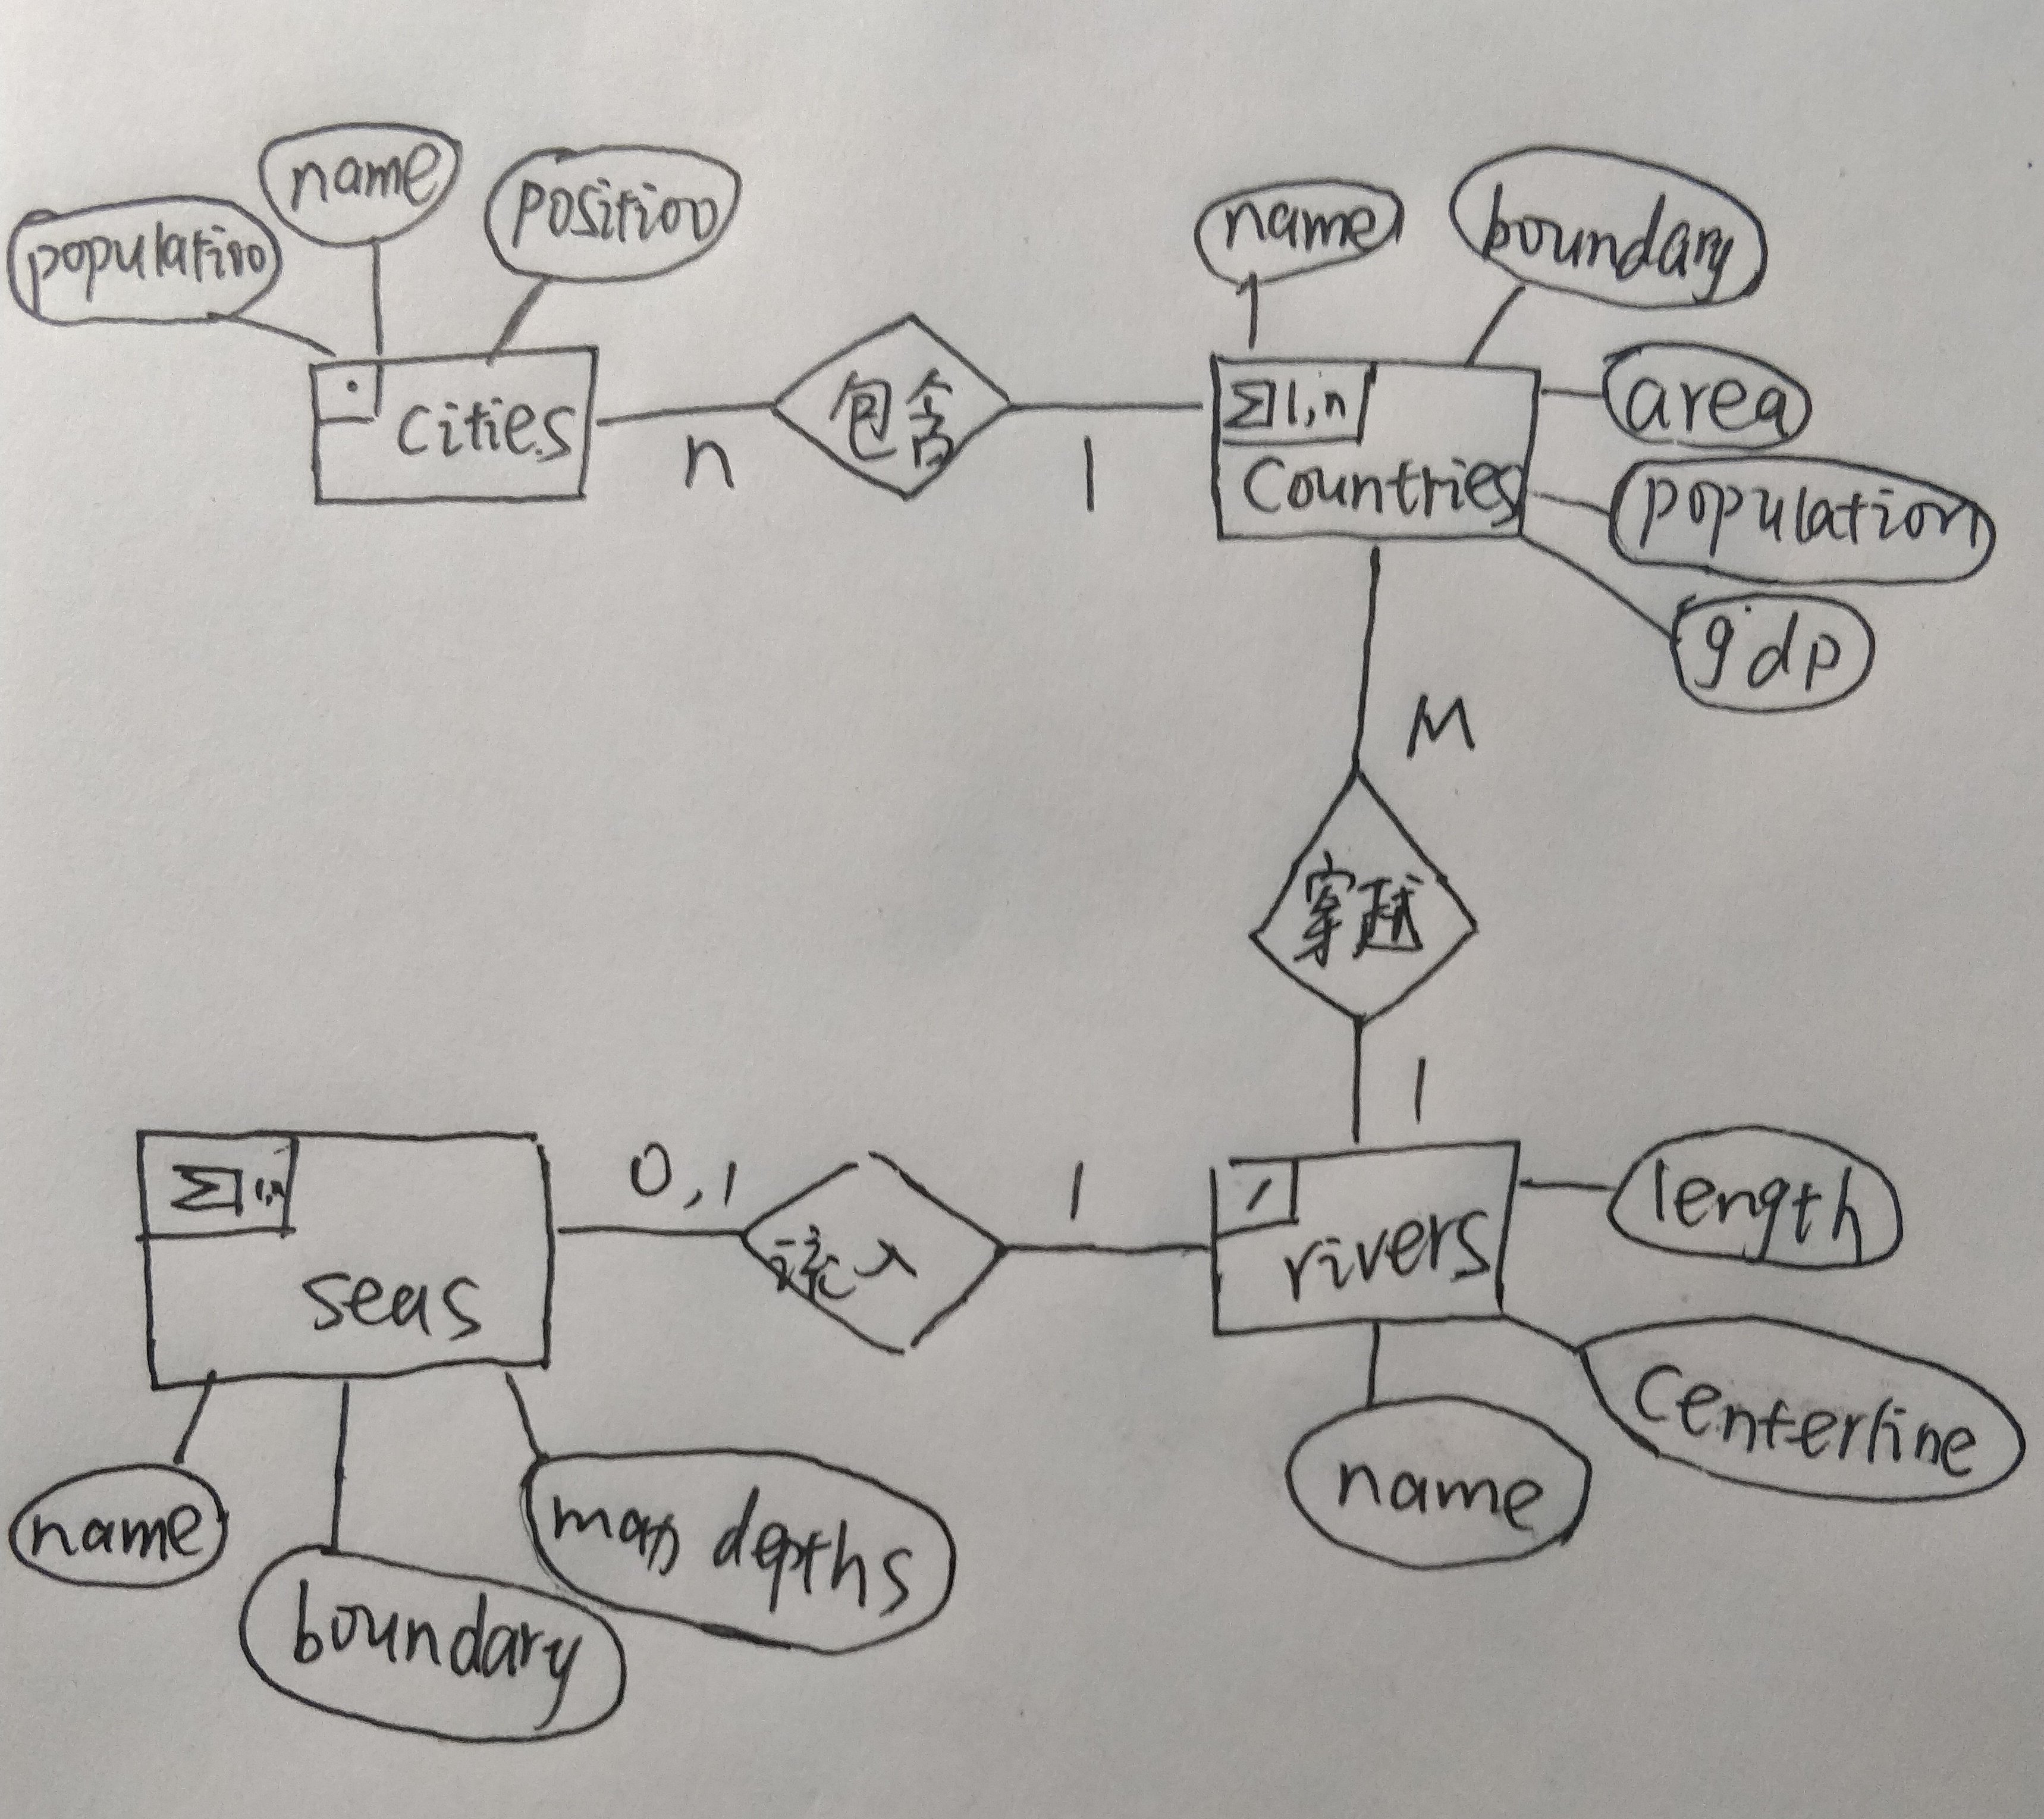 name
population
position
cities
n
包含
1
name
boundary
Σ1,n
Countries
area
population
gdp
M
穿越
1
Σ1,n
seas
0,1
流入
1
rivers
length
centerline
name
name
boundary
depths